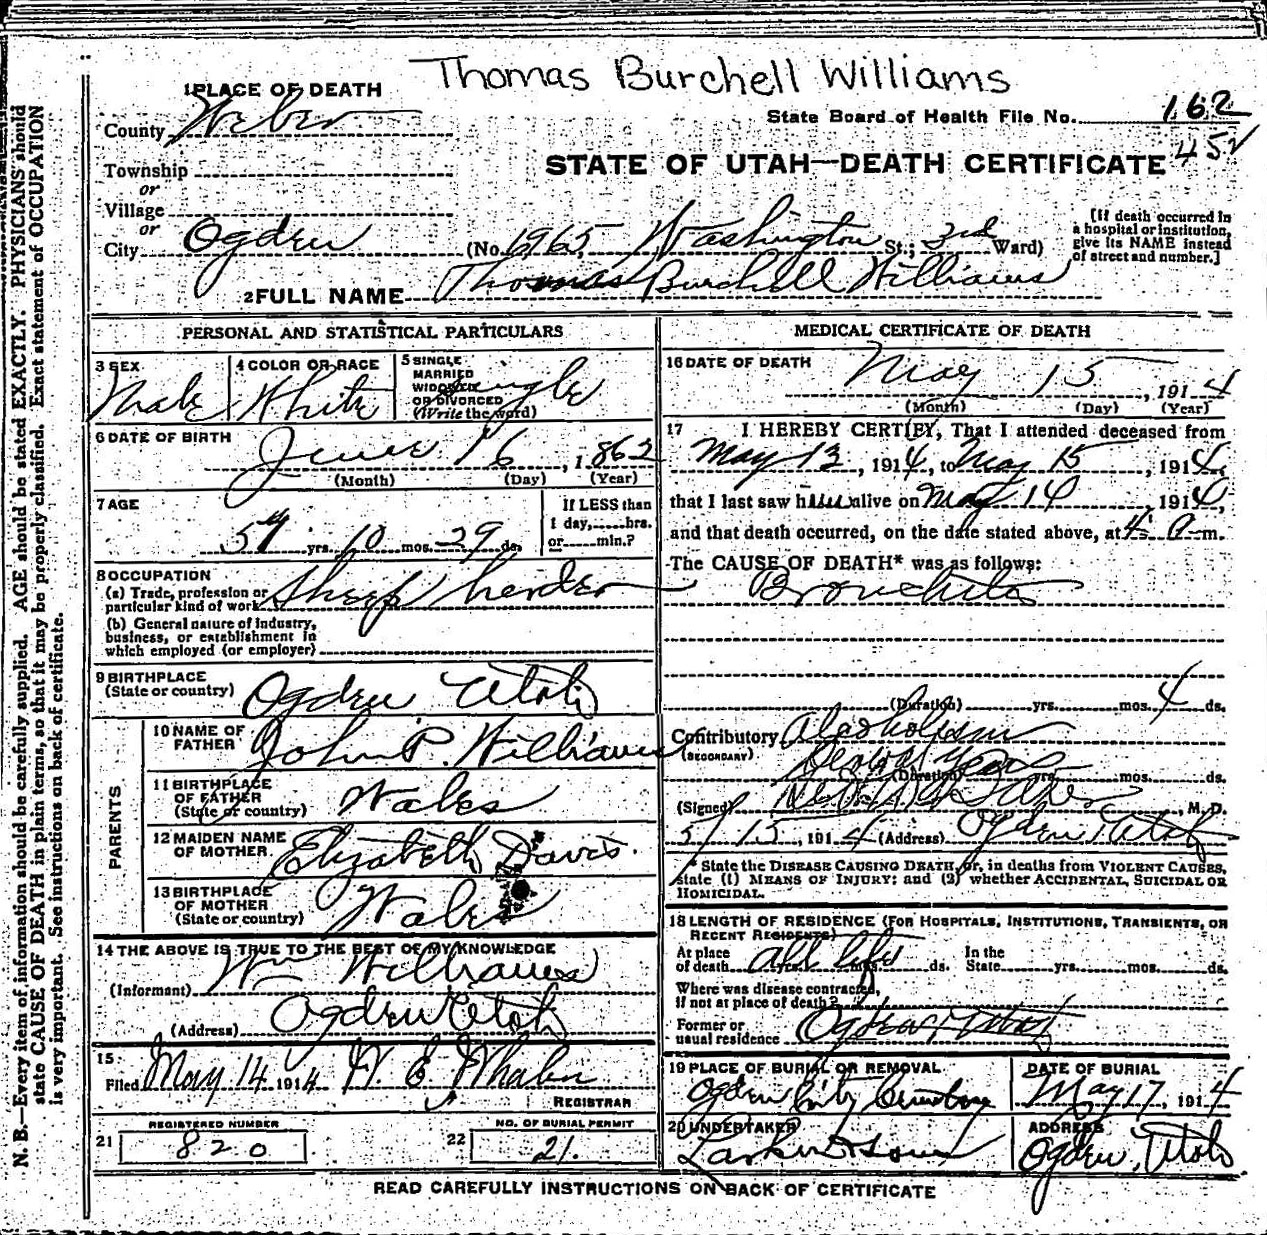 Thomas Burchell Williams
1 PLACE OF DEATH
County Weber
State Board of Health File No. 162
452
Township
or
Village
or
STATE OF UTAH—DEATH CERTIFICATE
City Ogden (No. 6965, Washington St.; 3rd Ward)
[If death occurred in
a hospital or institution,
give its NAME instead
of street and number.]
2 FULL NAME Thomas Burchell Williams
PERSONAL AND STATISTICAL PARTICULARS
3 SEX
Male
4 COLOR OR RACE
White
5 SINGLE
MARRIED
WIDOWED
OR DIVORCED
(Write the word)
Single
6 DATE OF BIRTH
June 16, 1862
(Month) (Day) (Year)
7 AGE
yrs. 10 mos. 29 ds.
If LESS than
1 day,......hrs.
or......min.?
8 OCCUPATION
(a) Trade, profession or
particular kind of work Sheep herder
(b) General nature of industry,
business, or establishment in
which employed (or employer)
9 BIRTHPLACE
(State or country) Ogden Utah
PARENTS
10 NAME OF
FATHER John P. Williams
11 BIRTHPLACE
OF FATHER
(State or country) Wales
12 MAIDEN NAME
OF MOTHER Elizabeth Davis.
13 BIRTHPLACE
OF MOTHER
(State or country) Wales
14 THE ABOVE IS TRUE TO THE BEST OF MY KNOWLEDGE
(Informant) Wm Williams
(Address) Ogden Utah
15
Filed May 14 1914 W. E. Whalen
REGISTRAR
REGISTERED NUMBER
21 820
NO. OF BURIAL PERMIT
22 21.
MEDICAL CERTIFICATE OF DEATH
16 DATE OF DEATH
May 15, 1914
(Month) (Day) (Year)
17 I HEREBY CERTIFY, That I attended deceased from
May 13, 1914, to May 15, 1914,
that I last saw him alive on May 14, 1914,
and that death occurred, on the date stated above, at 4 a m.
The CAUSE OF DEATH* was as follows:
Bronchitis
(Duration) yrs. mos. 4 ds.
Contributory Alcoholism
(SECONDARY)
Several years
(Duration) yrs. mos. ds.
(Signed) M. D.
5/15, 1914 (Address) Ogden Utah
* State the DISEASE CAUSING DEATH, or, in deaths from VIOLENT CAUSES,
state (1) MEANS OF INJURY; and (2) whether ACCIDENTAL, SUICIDAL OR
HOMICIDAL.
18 LENGTH OF RESIDENCE (FOR HOSPITALS, INSTITUTIONS, TRANSIENTS, OR
RECENT RESIDENTS)
At place
of death all life ds. In the
State yrs. mos. ds.
Where was disease contracted,
if not at place of death?
Former or
usual residence Ogden Utah
19 PLACE OF BURIAL OR REMOVAL
Ogden City Cemetery
DATE OF BURIAL
May 17, 1914
20 UNDERTAKER
Larkin & Sons
ADDRESS
Ogden, Utah
READ CAREFULLY INSTRUCTIONS ON BACK OF CERTIFICATE
N. B.—Every item of information should be carefully supplied. AGE should be stated EXACTLY. PHYSICIANS should
state CAUSE OF DEATH in plain terms, so that it may be properly classified. Exact statement of OCCUPATION
is very important. See instructions on back of certificate.